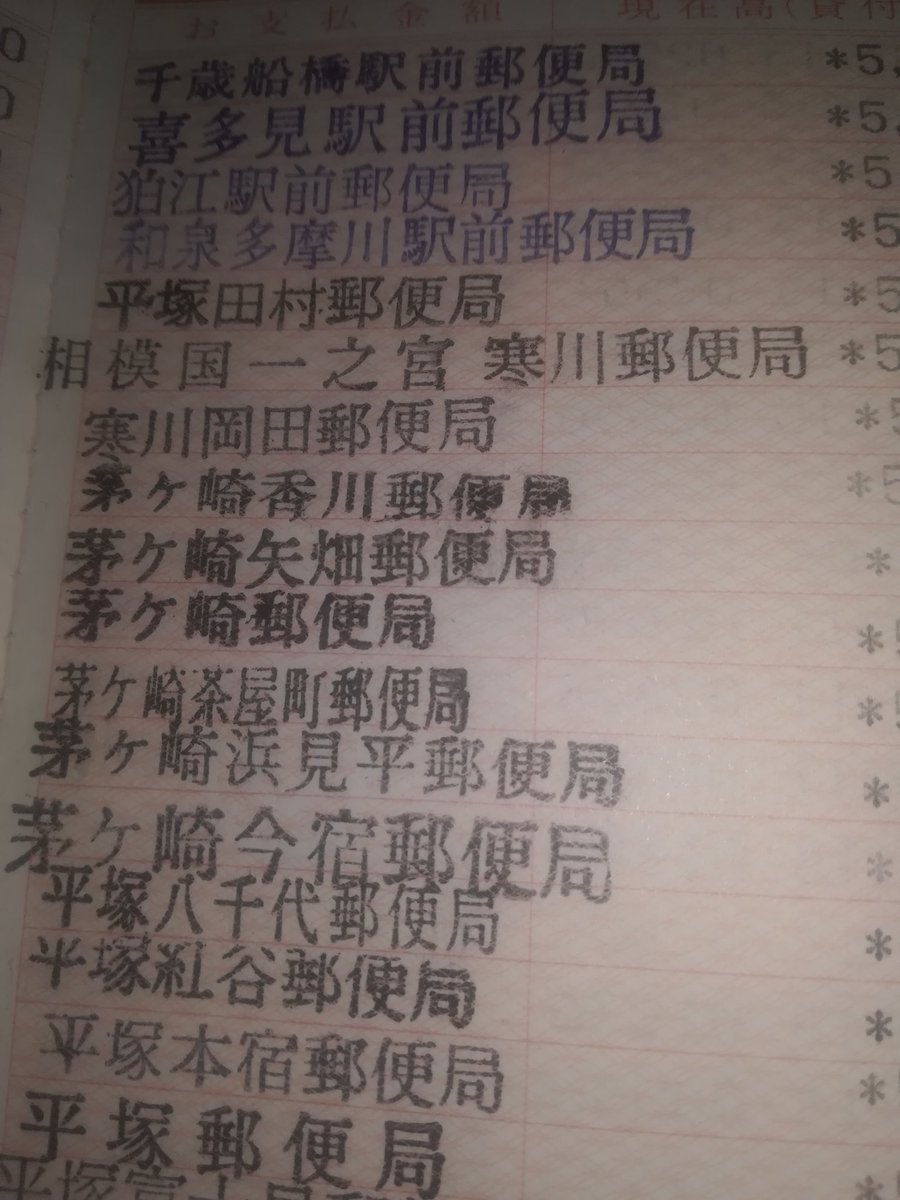 お支払金額 現在高(貸付
千歳船橋駅前郵便局 *5,
喜多見駅前郵便局 *5,
狛江駅前郵便局 *5
和泉多摩川駅前郵便局 *5
平塚田村郵便局 *5
相模国一之宮 寒川郵便局 *5
寒川岡田郵便局 *5
茅ヶ崎香川郵便局 *5
茅ケ崎矢畑郵便局 *
茅ケ崎郵便局 *5
茅ケ崎茶屋町郵便局 *5
茅ヶ崎浜見平郵便局 *
茅ケ崎今宿郵便局 *
平塚八千代郵便局 *
平塚紅谷郵便局 *
平塚本宿郵便局 *
平塚郵便局 *
平塚富士見郵便局 *